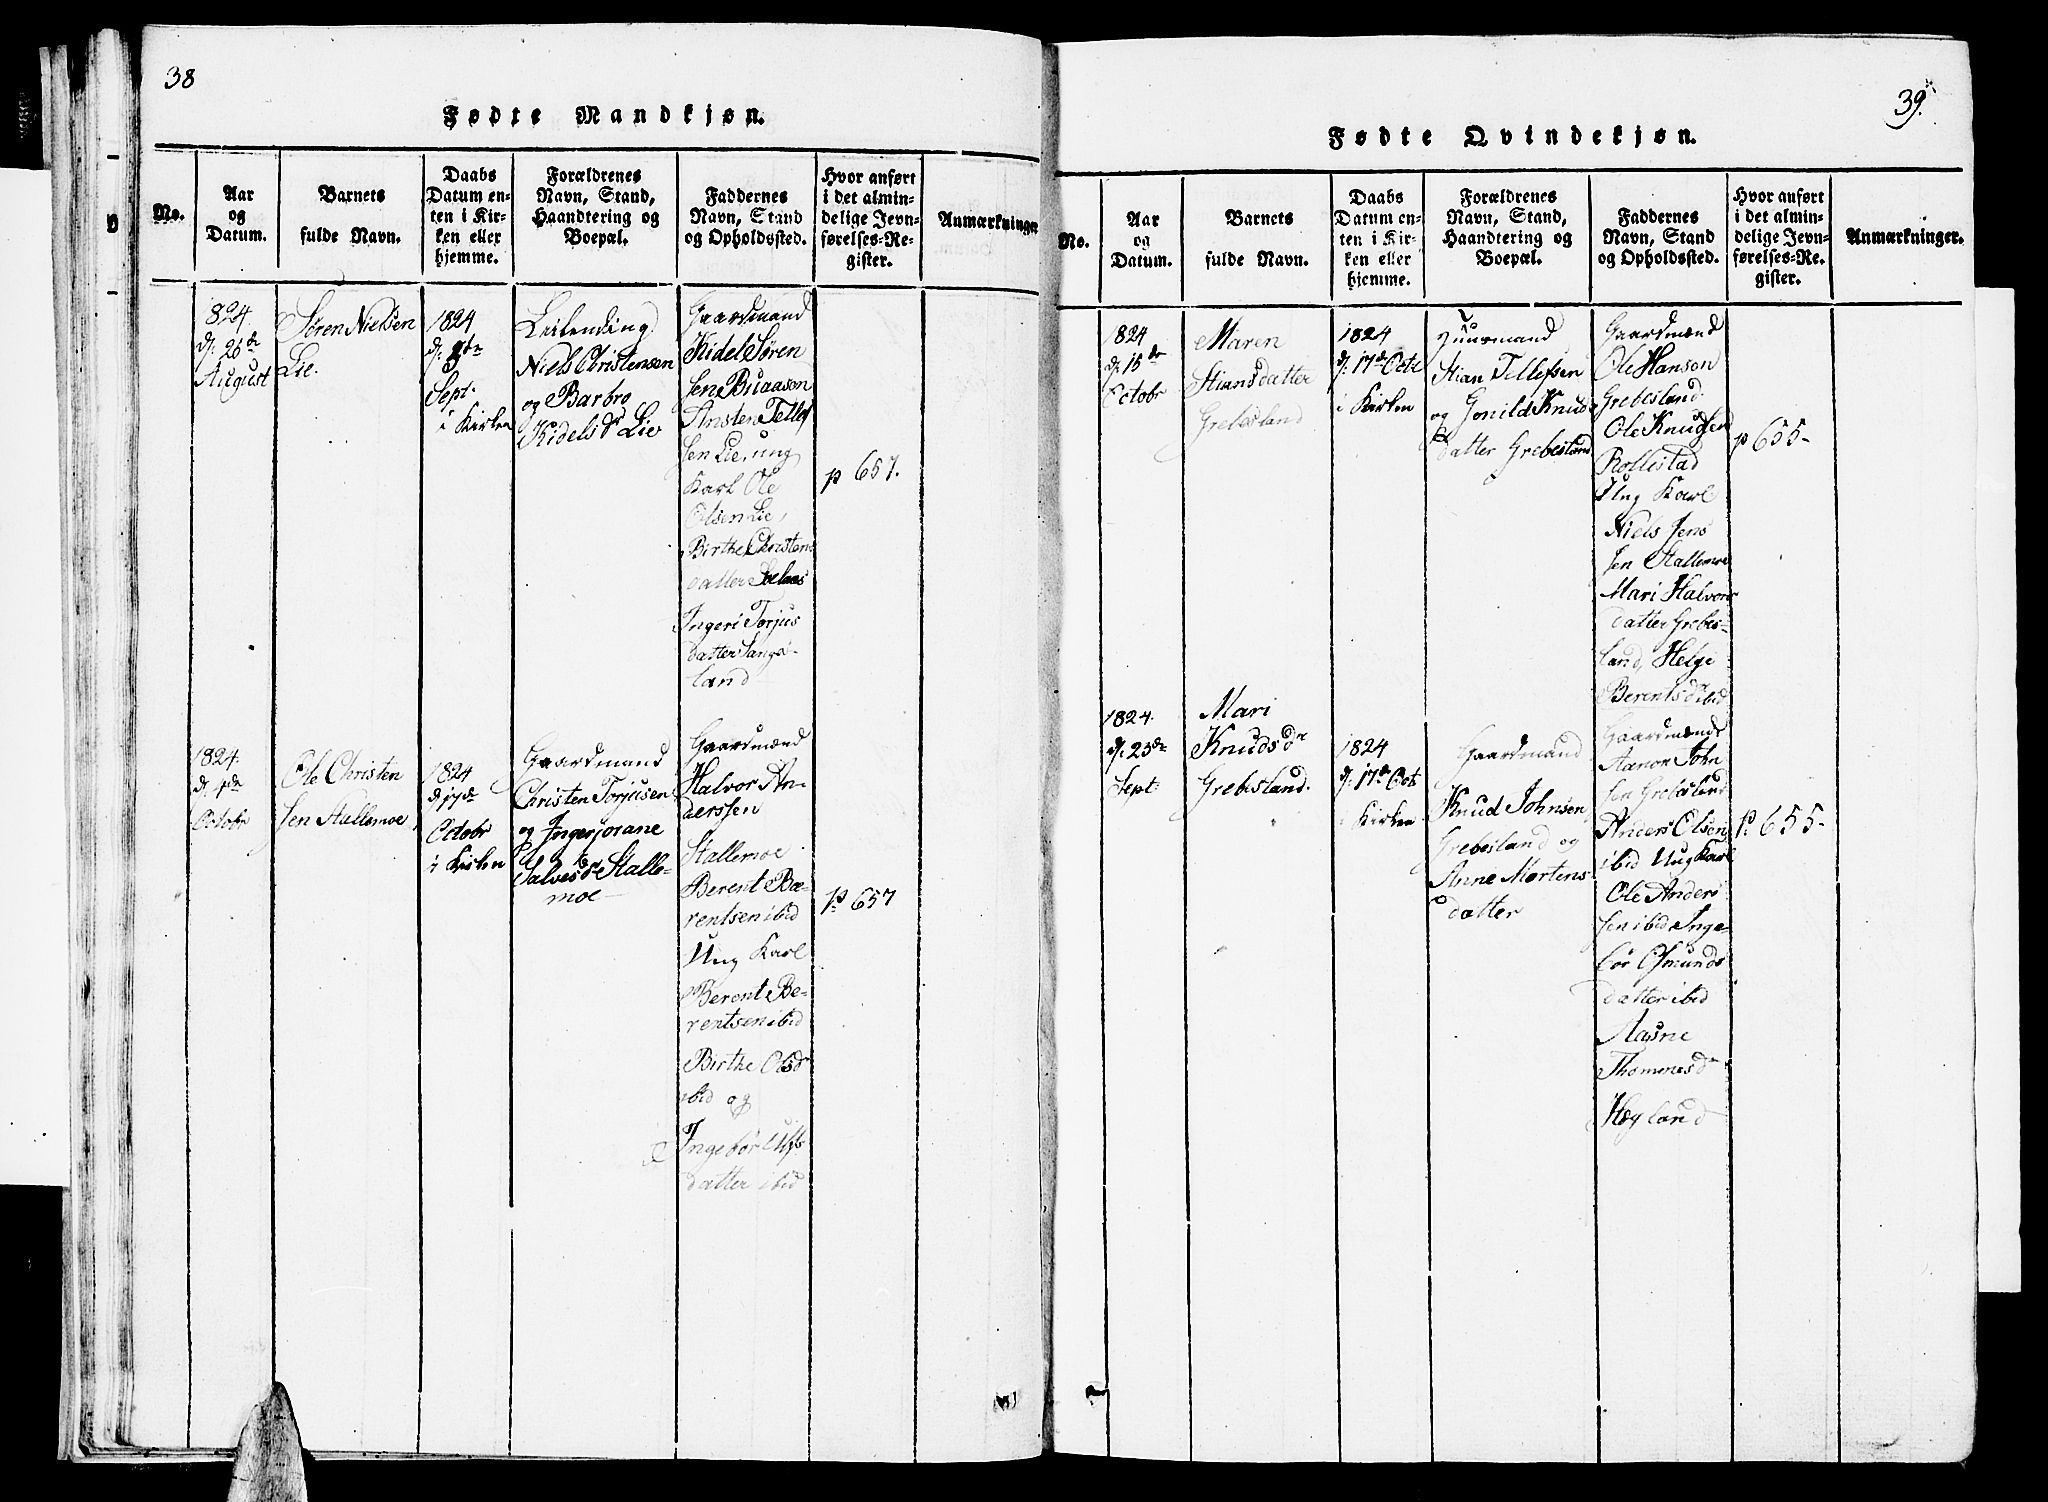 38
Fødte Mandkjøn.
No.
Aar
og
Datum.
Barnets
fulde Navn.
Daabs
Datum en-
ten i Kir-
ken eller
hjemme.
Forældrenes
Navn, Stand,
Haandtering og
Boepæl.
Faddernes
Navn, Stand
og Opholdssted.
Hvor anført
i det almin-
delige Jevn-
førelses-Re-
gister.
Anmærkninger
1824
d. 26de
August
Søren Nielsen
Lie.
1824
d.
Sept.
i Kirken
Leilending
Niels Christensen
og Barbro
Kidelsdr Lie
Gaardmænd
Kidel Søren
sen Buaasen
Ansten Tellef
sen Lie, ung
Karl Ole
Olsen Lie,
Birthe Christens
datter
Ingeri Torjus
datter Langs-
land
p 657.
1824
d. 4de
Octobr
Ole Christen
sen Stallemoe
1824
d 17de
Octobr
i Kirken
Gaardmand
Christen Torjusen
og Ingerjorane
Salvesdr Stalle-
moe
Gaardmænd
Halvor An-
derssen
Stallemoe
Berent Be-
rentsen ibid
Ung Karl
Berent Be-
rentsen ibid
Birthe Olsdr
ibid og
Ingebor
datter ibid
p 657
39.
Fødte Qvindekjøn.
No.
Aar
og
Datum.
Barnets
fulde Navn.
Daabs
Datum en-
ten i Kir-
ken eller
hjemme.
Forældrenes
Navn, Stand,
Haandtering og
Boepæl.
Faddernes
Navn, Stand
og Opholdssted.
Hvor anført
i det almin-
delige Jevn-
førelses-Re-
gister.
Anmærkninger.
1824
d. 15de
Octobr
Maren
Stiansdatter
Grebesland
1824
d. 17de Octr
i Kirken
Huusmand
Stian Tellefsen
og Gonild Knuds
datter Grebesland
Gaardmænd
Ole Hanson
Grebesland
Ole Knudsen
Rollestad
Ung Karl
Niels Jens
sen Stallemoe
Mari Halvors
datter Grebes-
land, Helge
Berentsdr ibid
p 655-
1824.
d. 23de
Sept.
Mari
Knudsdr
Grebesland.
1824
d. 17de Oct
i Kirken
Gaardmand
Knud Johnsen
Grebesland og
Anne Mortens
datter
Gaardmænd
Aanon John
sen Grebesland
Anders Olsen
ibid Ung Karl
Ole Anders
sen ibid Inge-
bor Osmunds
datter ibid
Aasne
Thommesdr
Høyland
p. 655-